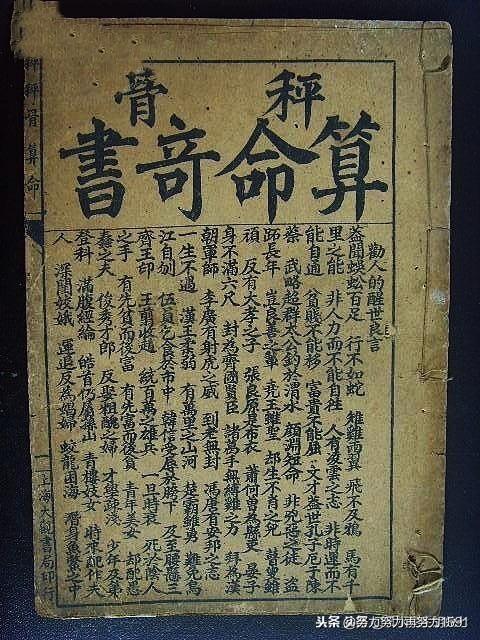 秤骨
算命奇書
秤骨算命
勸人的醒世良言
蓋聞蜈蚣百足 行不如蛇 雄雞兩翼 飛不及鴉 馬有千
里之能 非人力而不能自往 人有凌雲之志 非時運而不
能自通 貧賤不能移 富貴不能屈 文才蓋世孔子厄于陳
蔡 武略超群太公釣於渭水 顏淵短命 非兇惡之徒 盜
跖長年 豈良善之輩 堯王雖聖 却生不肖之兒 瞽叟雖
頑 反有大孝之子 張良原是布衣 蕭何曾為縣吏 晏子
身不滿六尺 封為齊國賢臣 諸萬手無縛雞之力 拜為漢
朝軍師 李廣有射虎之威 到老無封 馮唐有安邦之志
一生不遇 漢王 有萬里之山河 楚霸雖勇 難免烏
江自刎 伍員乞食於市中 韓信受辱於胯下 及至腰懸三
齊王印 王翦收趙 統百萬之雄兵 一旦時衰 死於陰人
之手 有先貧而後富 有先富而後貧 青年美女 却配愚
蠢之夫 俊秀才郎 反娶粗醜之婦 才學疎淺 少年及第
登科 滿腹經綸 皓首仍屬深山 青樓妓女 時來配作夫
人 深閨嫦娥 運退反為娼婦 蛟龍困海 潛身魚蝦之中
上海大觀書局印行
头条 @努力努力再努力1591